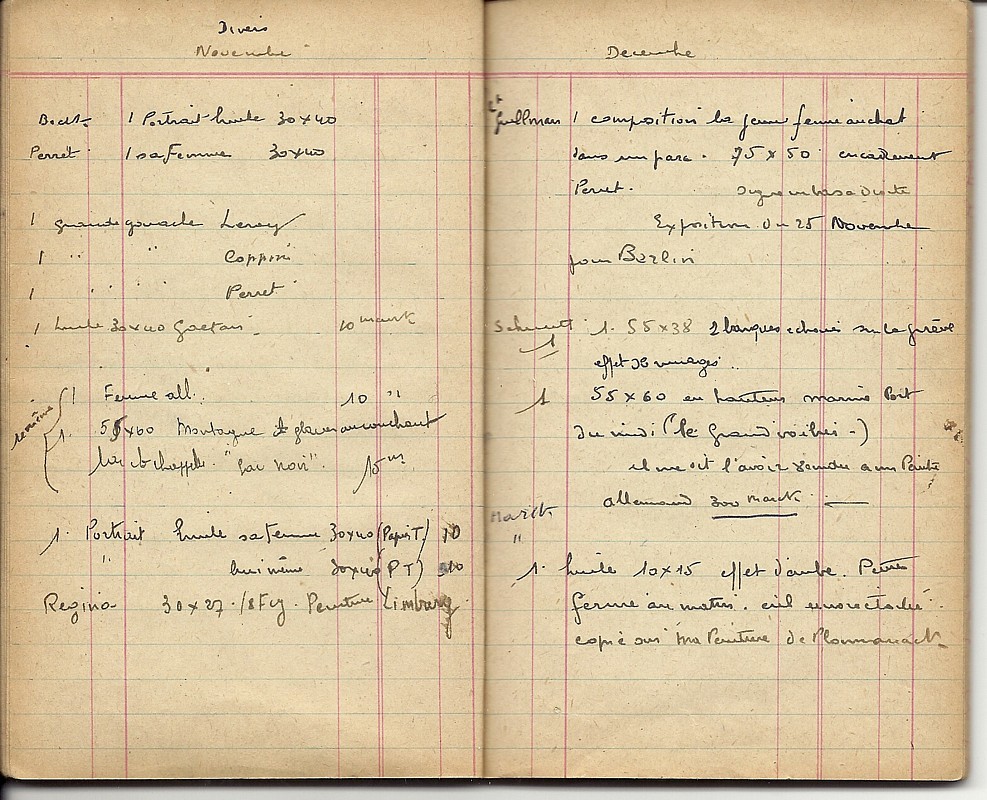 Divers
Novembre
1 Portrait huile 30x40
Perret 1 sa Femme 30x40
1 grande gouache Leroy
1 " Coppini
1 " " " Perret
1 huile 30x40 Gaetan 10 marck
le même
1 Femme all. 10 "
1. 55x60 Montagne glaces au couchant
Lac "Lac noir". 15 m
1. Portrait huile sa Femme 30x40 (Papier T.) 10
" lui même 30x40 (P T) 10
Regina 30x27 Peinture Limbourg
Decembre
Lt Guillman 1 composition la jeune femme au chat
dans un parc. 75 x 50 encadrement
Perret. signe en bas a Droite
Exposition du 25 Novembre
pour Berlin
Schmitt 1. 55x38 2 barques echoués sur la grève
1
effet de nuages..
1 55 x 60 en hauteur marine Port
du midi (le Grand voilier -)
il me dit l'avoir vendu a un Peintre
allemand 300 marck
Marck
"
1. huile 10x15 effet d'aube. Petite
ferme au matin. ciel
copie sur ma Peinture de Ploumanach